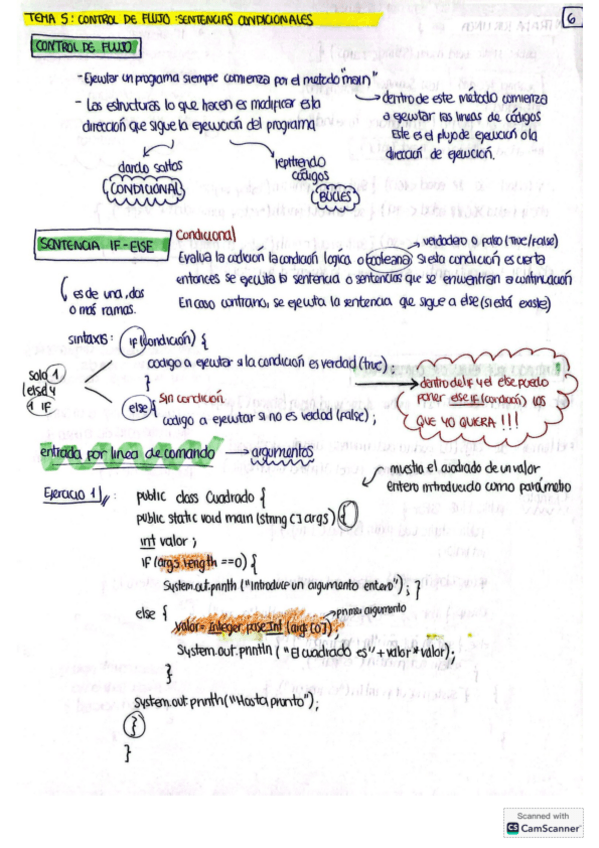 TEMA 5: CONTROL DE FLUJO: SENTENCIAS CONDICIONALES
6
CONTROL DE FLUJO
- Ejecutar un programa siempre comienza por el metodo "main"
- Las estructuras lo que hacen es modificar esta
dirección que sigue la ejecución del programa
dentro de este método comienza
a ejecutar las lineas de códigos
Este es el flujo de ejecución o la
dirección de ejecución.
dando saltos
CONDICIONAL
repitiendo
códigos
BUCLES
SENTENCIA IF-ELSE
Condicional
verdadero o falso (True/False)
Evalua la codicion la condición logica o booleana Si esta condición es cierta
entonces se ejecuta la sentencia o sentencias que se encuentran a continuación
En caso contrario, se ejecuta la sentencia que sigue a else (si está existe)
es de una, dos
o más ramas.
sintaxis: IF (condición) {
codigo a ejecutar si la condición es verdad (true);
}
solo 1
1 else y
1 IF
else { Sin condición
codigo a ejecutar si no es verdad (false);
dentro del IF y el else puedo
poner else IF (condición) LOS
QUE YO QUIERA!!!
entrada por linea de comando → argumentos
muestra el cuadrado de un valor
entero introducido como parámetro
Ejercicio 1:
public class Cuadrado {
public static void main (string [] args) {
int valor;
IF (args.length ==0) {
System.out.println ("Introduce un argumento entero"); }
else {
primer argumento
valor= Integer.parseInt (args[0]);
System.out.println ("El cuadrado es" + valor*valor);
}
System.out.println("Hasta pronto");
}
}
Scanned with
CS CamScanner